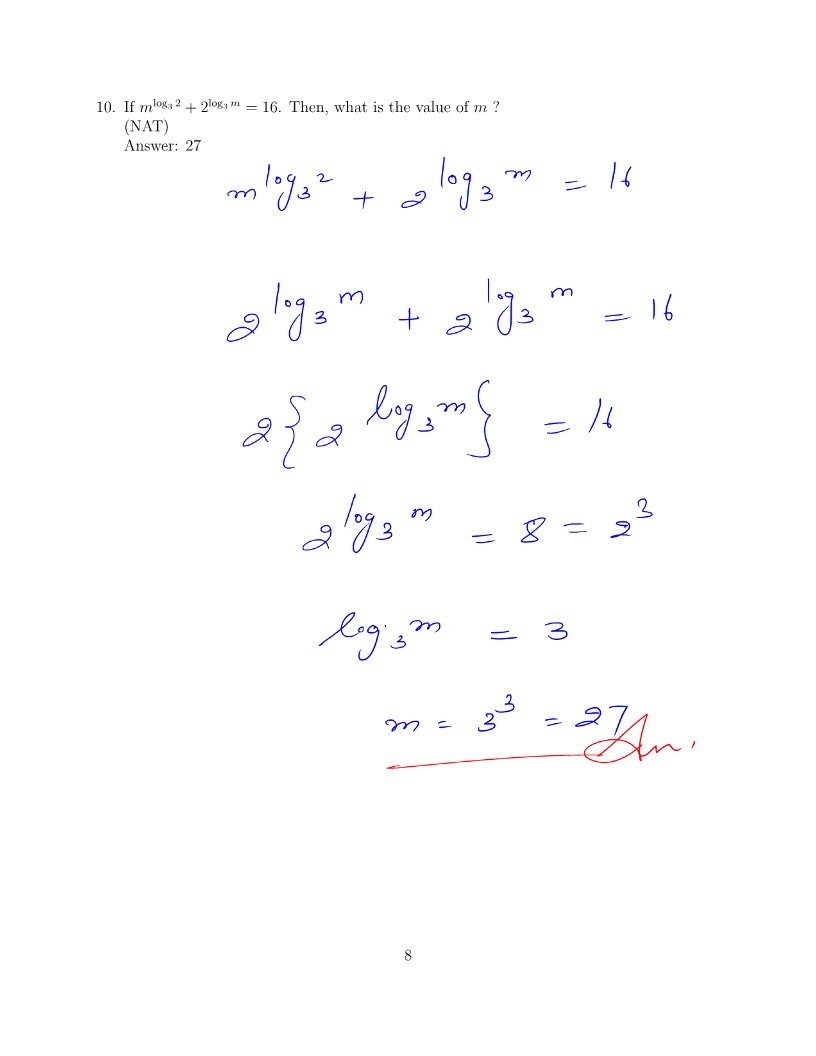 10. If m^{log_3 2} + 2^{log_3 m} = 16. Then, what is the value of m ?
(NAT)
Answer: 27
m^{log_3 2} + 2^{log_3 m} = 16
2^{log_3 m} + 2^{log_3 m} = 16
2{2^{log_3 m}} = 16
2^{log_3 m} = 8 = 2^3
log_3 m = 3
m = 3^3 = 27 An.
8